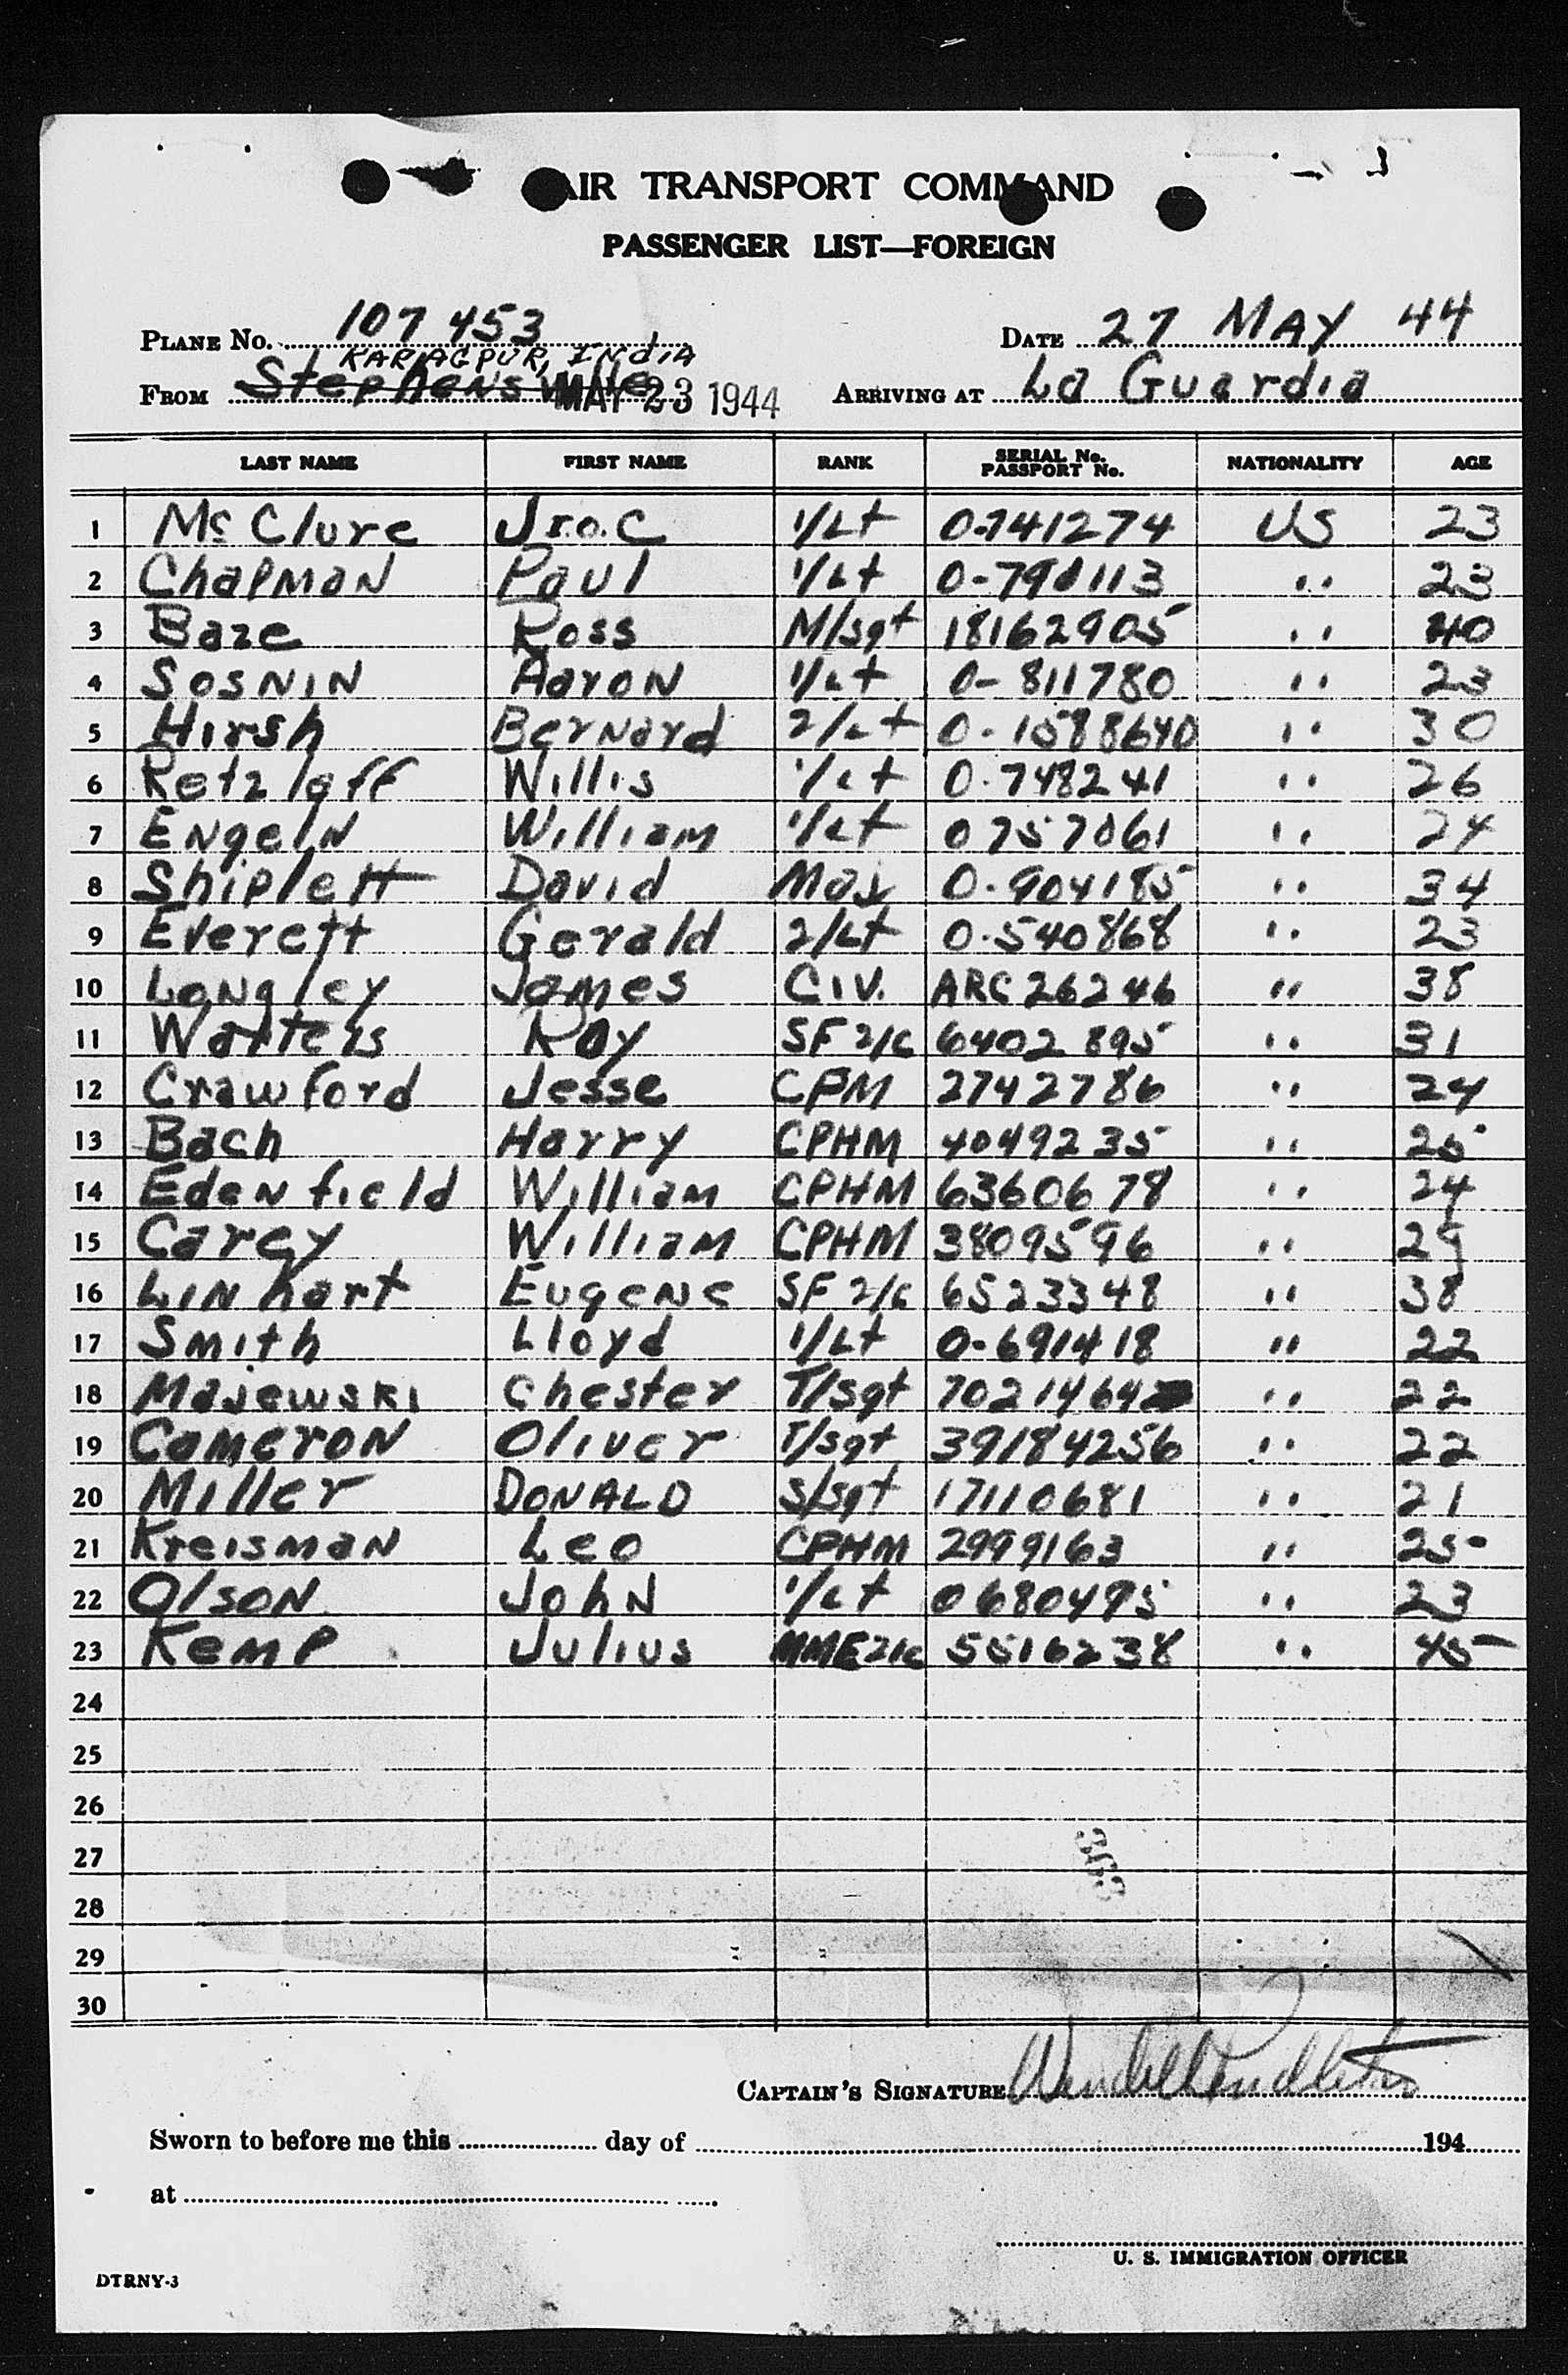 AIR TRANSPORT COMMAND
PASSENGER LIST—FOREIGN
PLANE No. 107 453 DATE 27 MAY 44
KARAGPUR, INDIA
FROM Stephensville MAY 23 1944 ARRIVING AT La Guardia
LAST NAME FIRST NAME RANK SERIAL No. PASSPORT No. NATIONALITY AGE
1 McClure Jno. C 1/Lt 0-741274 US 23
2 Chapman Paul 1/Lt 0-790113 " 23
3 Baze Ross M/sgt 18162905 " 40
4 Sosnin Aaron 1/Lt 0-811780 " 23
5 Hirsh Bernard 2/Lt 0-1588640 " 30
6 Retzlaff Willis 1/Lt 0-748241 " 26
7 Engeln William 1/Lt 0757061 " 24
8 Shiplett David Maj 0-904185 " 34
9 Everett Gerald 2/Lt 0-540868 " 23
10 Longley James CIV. ARC 26246 " 38
11 Roy SF 2/c 6402895 " 31
12 Crawford Jesse CPM 2742786 " 24
13 Bach Harry CPHM 4049235 " 25
14 Edenfield William CPHM 6360678 " 24
15 Carey William CPHM 3809596 " 29
16 Linhart Eugene SF 2/c 6523348 " 38
17 Smith Lloyd 1/Lt 0-691418 " 22
18 Majewski Chester T/Sgt " 22
19 Cameron Oliver T/sgt 39184256 " 22
20 Miller DONALD S/sgt 17110681 " 21
21 Kreisman Leo CPHM 2999163 " 25
22 Olson John 1/Lt 0680495 " 23
23 Kemp Julius MME2/c 5516238 " 45
24
25
26
27
28
29
30
363
CAPTAIN'S SIGNATURE Wendell Pendleton
Sworn to before me this day of 194
at
U. S. IMMIGRATION OFFICER
DTRNY-3